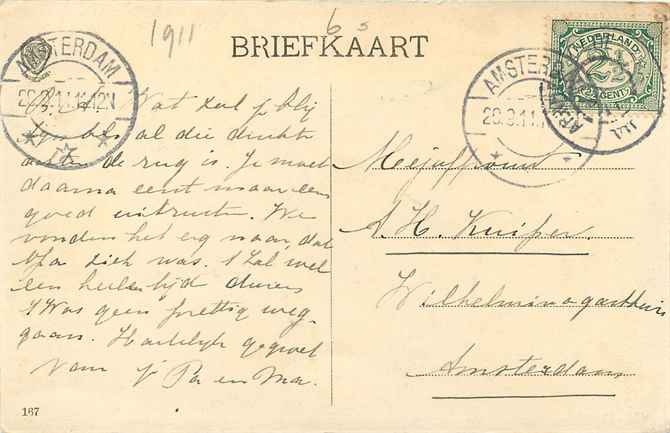 1911
6 s
BRIEFKAART
AMSTERDAM
NEDERLAND
2½
CENT
AMSTERD
20.9.11.1
Wat zal je blij
al die drukte
de rug is. Je moet
daarna eerst maar eens
goed uitrusten. We
vonden het erg naar, dat
ziek was. 't Zal wel
een heelen tijd duren
't Was geen prettig weg-
gaan. Hartelijk gegroet
van je Pa en Ma.
Mejuffrouw
A. H. Kuiper
Wilhelmina gasthuis
Amsterdam
167